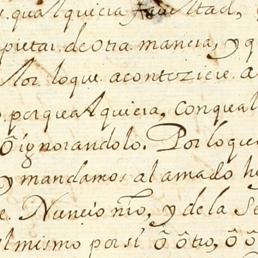 qualquiera facultad,
pietar de otra manera, y q
los loque acontezicie a
porqualquiera, conqual
ò ignorandolo. Por loque
y mandamos al amado h
e. Nuncio nrō, y de la Se
el mismo por sí ô ôtro, ô ô